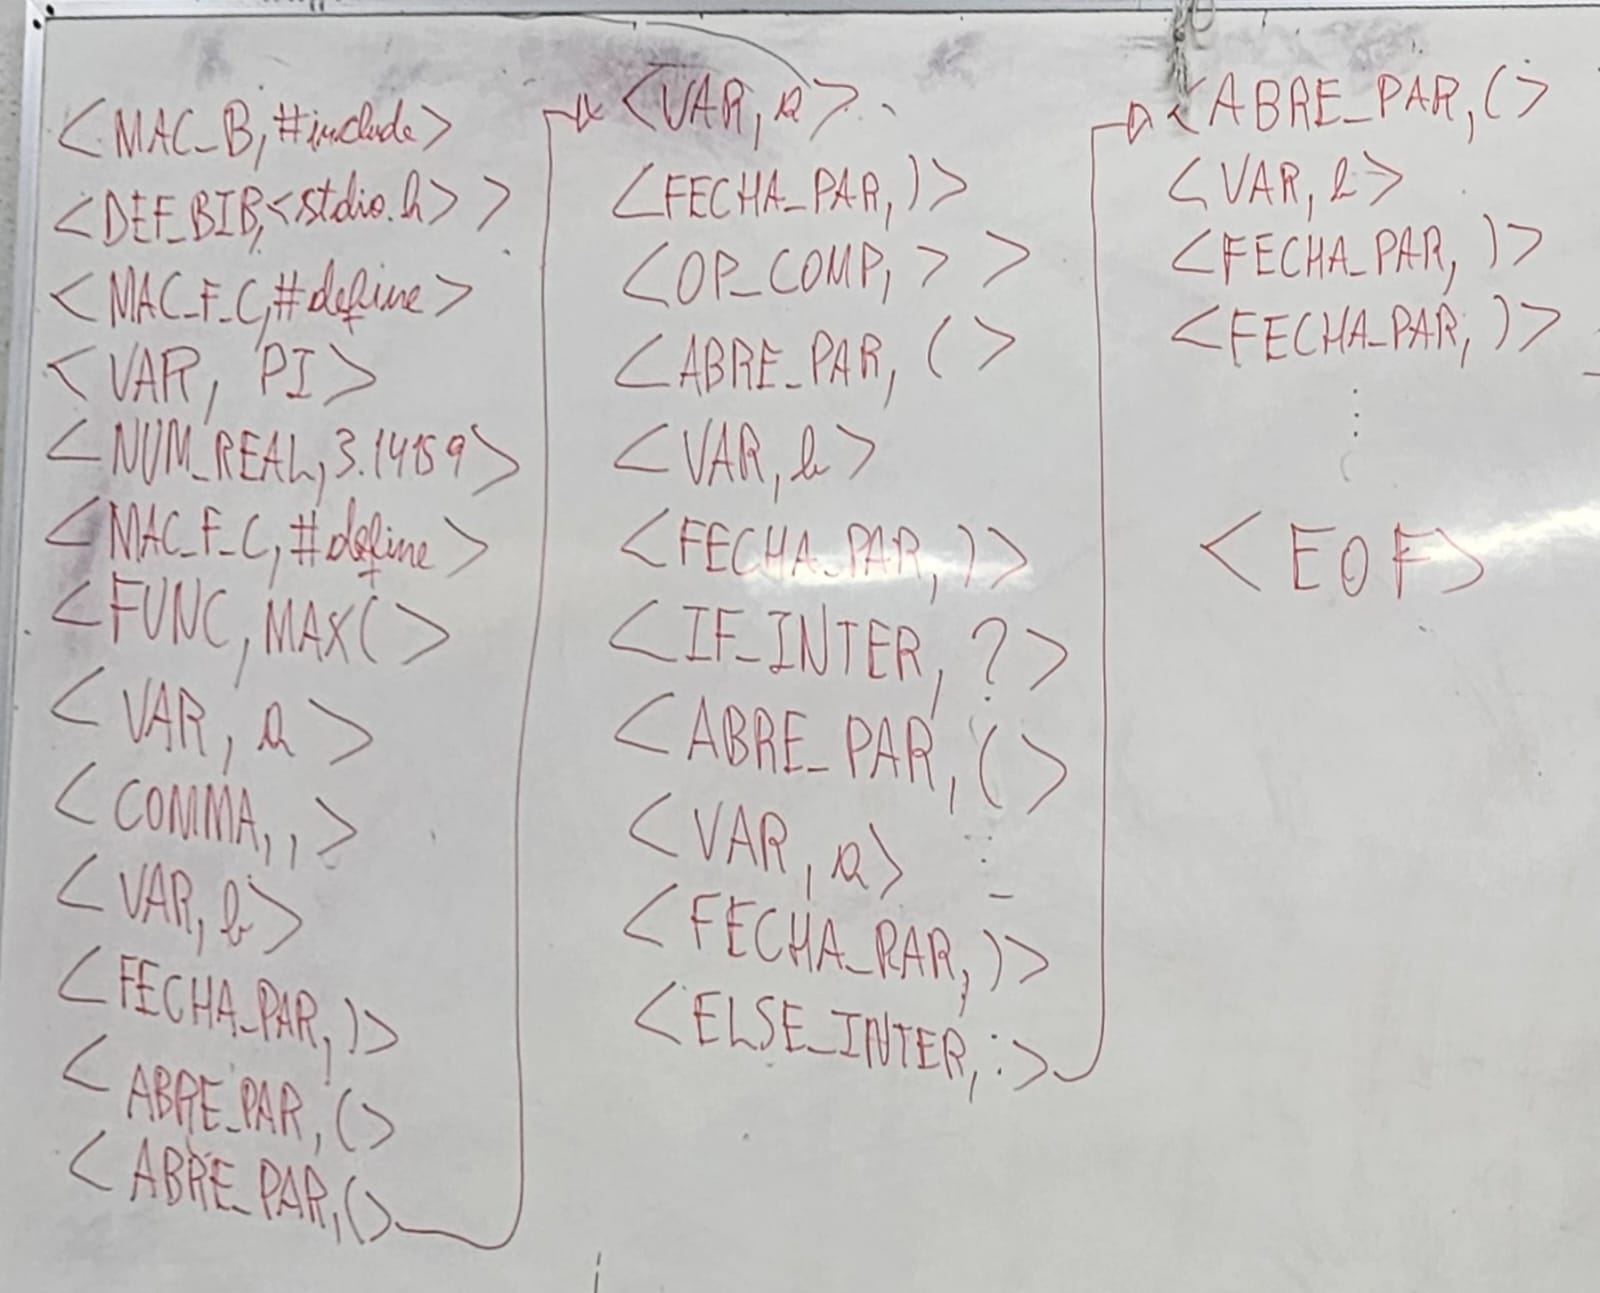 <MAC_B,#include>
<DEF_BIB,<stdio.h> >
<MAC_F_C,#define>
<VAR, PI>
<NUM_REAL,3.14159>
<MAC_F_C,#define>
<FUNC,MAX(>
<VAR, a>
<COMMA,,>
<VAR,b>
<FECHA_PAR,)>
<ABRE_PAR,(>
<ABRE_PAR,(>
<VAR,a>
<FECHA_PAR,)>
<OP_COMP, > >
<ABRE_PAR, (>
<VAR,b>
<FECHA_PAR,)>
<IF_INTER, ?>
<ABRE_PAR,(>
<VAR,a>
<FECHA_PAR,)>
<ELSE_INTER,:>
<ABRE_PAR,(>
<VAR,b>
<FECHA_PAR,)>
<FECHA_PAR,)>
<EOF>